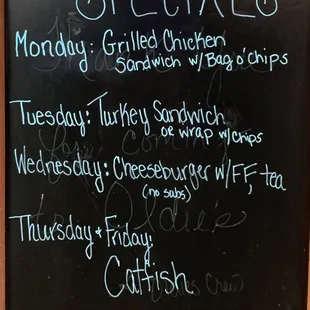 SPECIALS
Monday: Grilled Chicken
Sandwich w/ Bag o' chips
Tuesday: Turkey Sandwich
or wrap w/chips
Wednesday: Cheeseburger w/FF, tea
(no subs)
Thursday + Friday:
Catfish